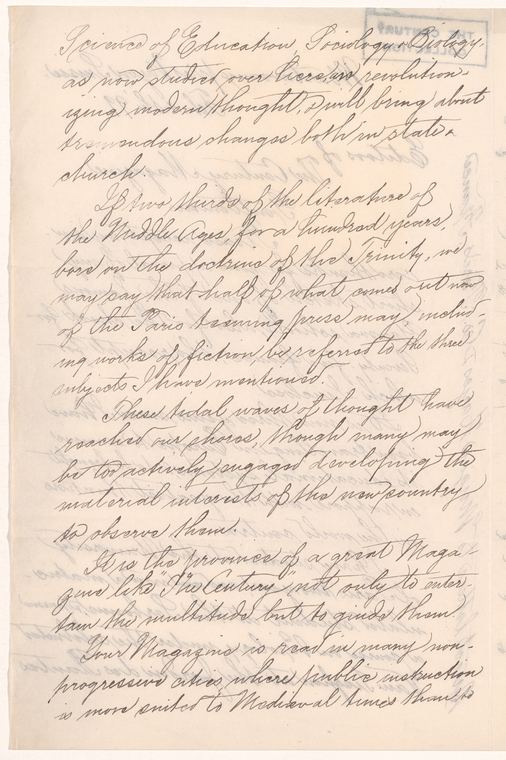 Science of Education, Sociology & Biology,
as now studied over here, is revolution-
izing modern thought, & will bring about
tremendous changes both in state &
church.
If two thirds of the literature of
the Middle Ages, for a hundred years,
bore on the doctrine of the Trinity, we
may say that half of what comes out now
of the Paris teeming press may, includ-
ing works of fiction be referred to the three
subjects I have mentioned.
These tidal waves of thought have
reached our shores, though many may
be too actively engaged developing the
material interests of the new country
to observe them.
It is the province of a great Maga-
zine like "The Century" not only to enter-
tain the multitude but to guide them
Your Magazine is read in many non-
progressive cities where public instruction
is more suited to Mediaeval times than to
THE CENTURY
COLLECTION